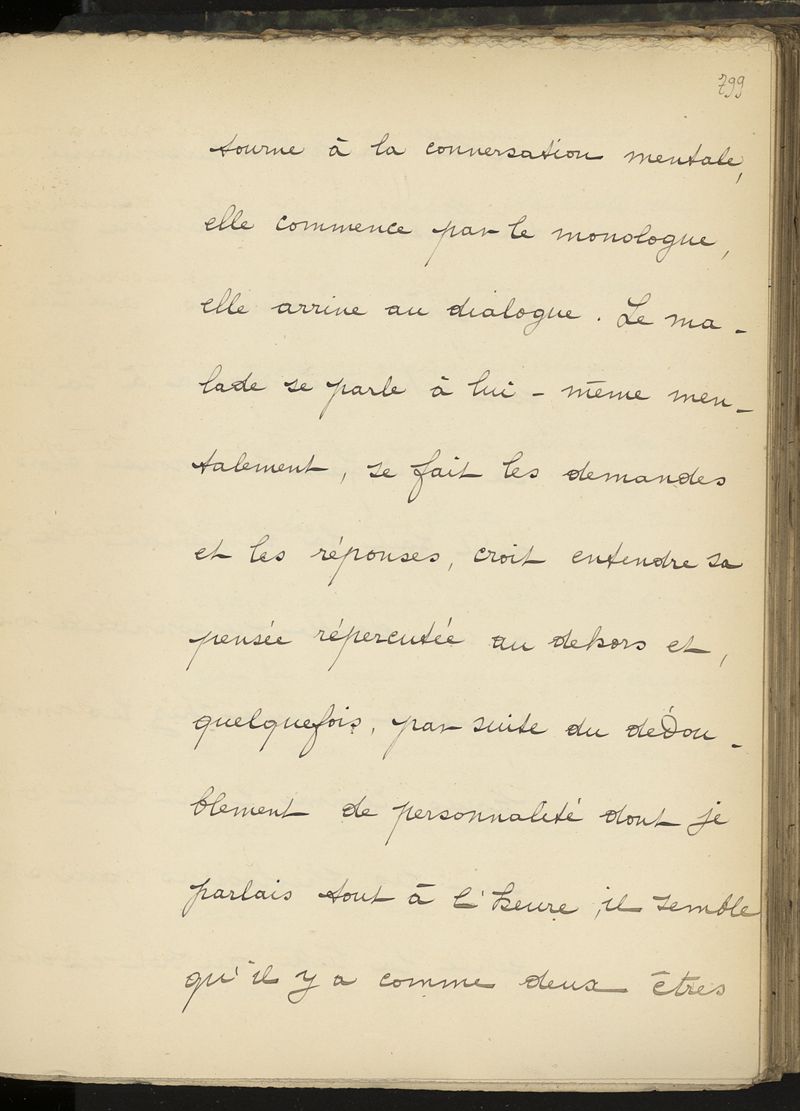 799
tourne à la conversation mentale,
elle commence par le monologue,
elle arrive au dialogue. Le ma-
lade se parle à lui-même men-
talement, se fait les demandes
et les réponses, croit entendre sa
pensée répercutée au dehors et,
quelquefois, par suite du dédou-
blement de personnalité dont je
parlais tout à l'heure, il semble
qu'il y a comme deux êtres